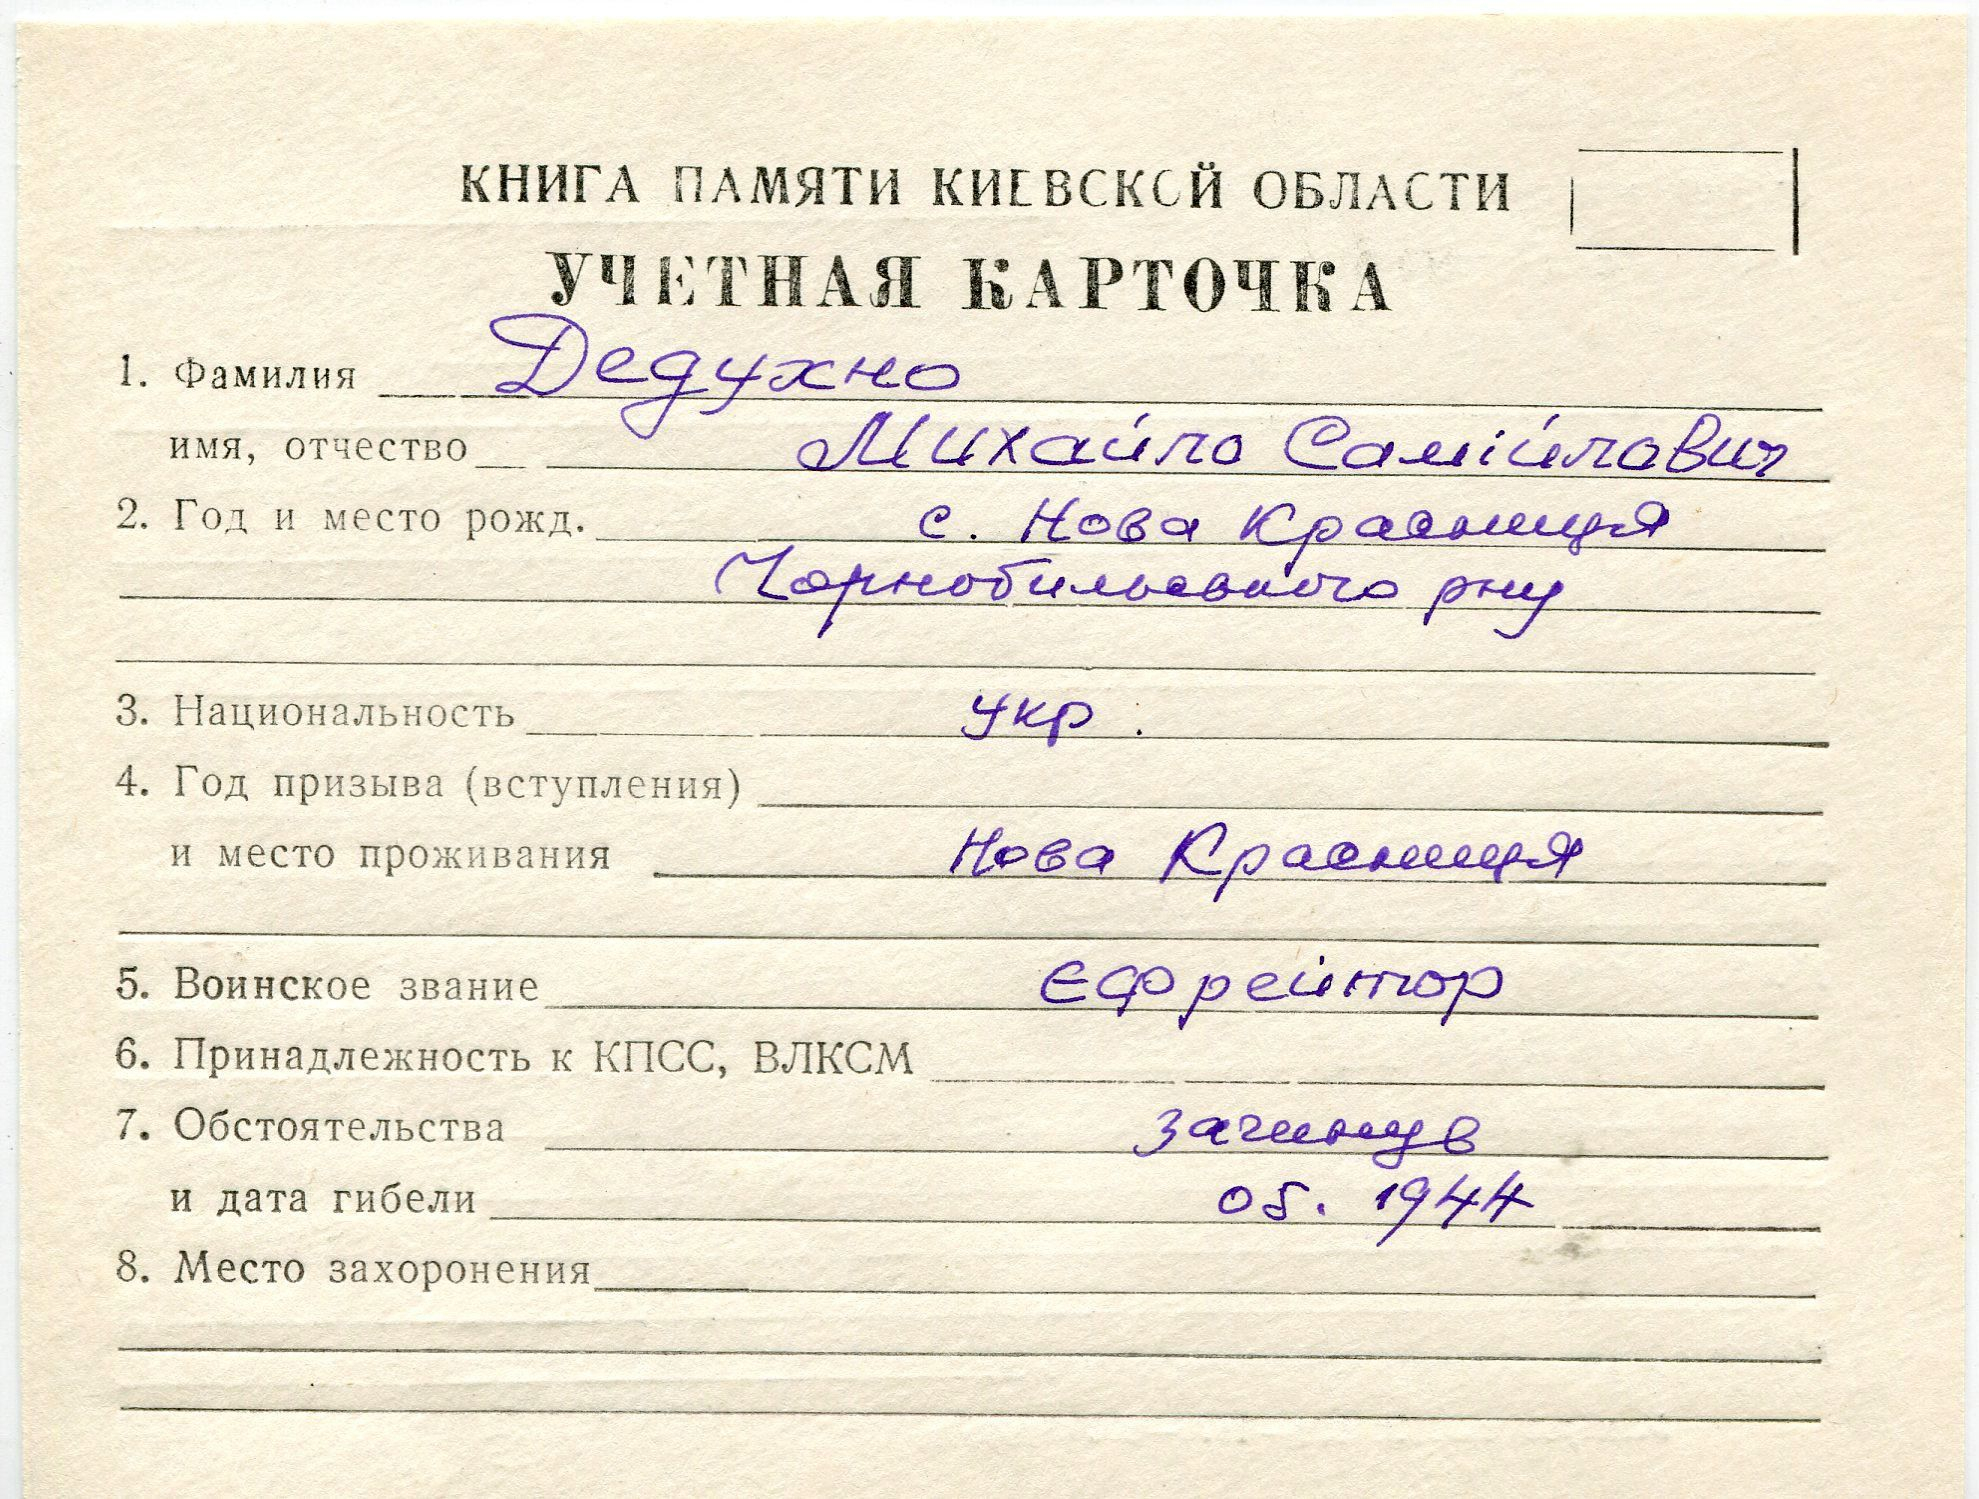 КНИГА ПАМЯТИ КИЕВСКОЙ ОБЛАСТИ
УЧЕТНАЯ КАРТОЧКА
1. Фамилия Дедухно
имя, отчество Михайло Самійлович
2. Год и место рожд. с. Нова Красниця
Чорнобильського рну
3. Национальность укр.
4. Год призыва (вступления)
и место проживания Нова Красниця
5. Воинское звание Єфрейтор
6. Принадлежность к КПСС, ВЛКСМ
7. Обстоятельства загинув
и дата гибели 05. 1944
8. Место захоронения